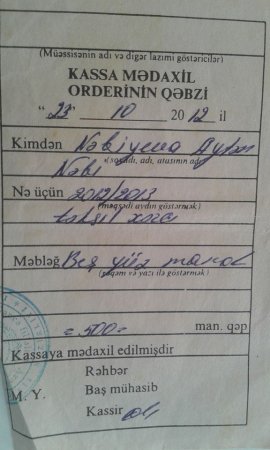 (Müəssisənin adı və digər lazımi göstəricilər)
KASSA MƏDAXİL
ORDERİNİN QƏBZİ
“23” 10 2012 il
Kimdən Nəbiyeva Aytən
(soyadı, adı, atasının adı)
Nəbi
Nə üçün 2012/2013
(məqsədi aydın göstərmək)
təhsil haqqı
Məbləğ Beş yüz manat
(rəqəm və yazı ilə göstərmək)
=500= man. qəp
Kassaya mədaxil edilmişdir
Rəhbər
M. Y. Baş mühasib
Kassir